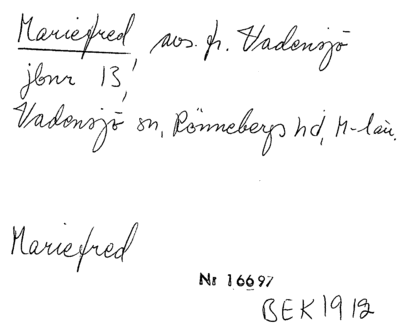 Mariefred, avs. fr. Vadensjö
jbnr 13,
Vadensjö sn, Rönnebergs hd, M-län.
Mariefred
Nr 16697
BEK 1912